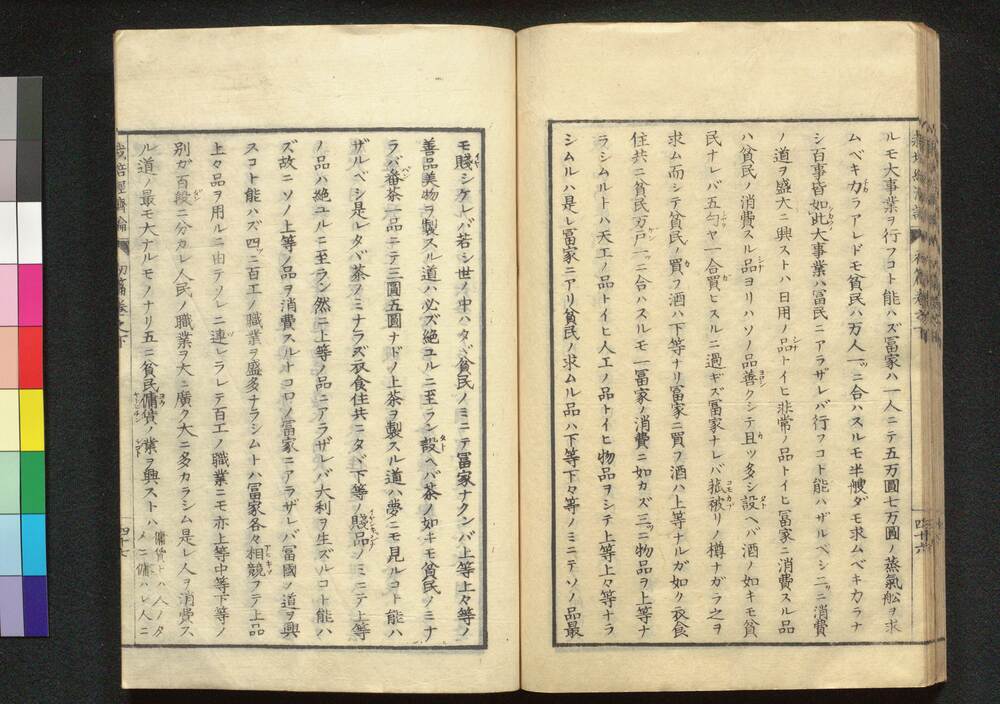 ルモ大事業ヲ行フコト能ハズ冨家ハ一人ニテ五万圓七万圓ノ蒸氣舩ヲ求
ムベキ力ラアレドモ貧民ハ万人一ツニ合ハスルモ半艘ダモ求ムベキ力ラナ
シ百事皆如此大事業ハ冨民ニアラザレバ行フコト能ハザルベシ二ツニ消費
ノ道ヲ盛大ニ興ストハ日用ノ品トイヒ非常ノ品トイヒ冨家ニ消費スル品
ハ貧民ノ消費スル品ヨリハソノ品善クシテ且ツ多シ設ヘバ酒ノ如キモ貧
民ナレバ五勺ヤ一合買ヒスルニ過ギズ冨家ナレバ菰被リノ樽ナガラ之ヲ
求ム而シテ貧民ノ買フ酒ハ下等ナリ冨家ニ買フ酒ハ上等ナルガ如ク衣食
住共ニ貧民万戸一ツニ合ハスルモ一冨家ノ消費ニ如カズ三ツニ物品ヲ上等ナ
ラシムルトハ天工ノ品トイヒ人工ノ品トイヒ物品ヲシテ上等上々等ナラ
シムルハ是レ冨家ニアリ貧民ノ求ムル品ハ下等下々等ノミニテソノ品最
四十六
モ賤シケレバ若シ世ノ中ハタヾ貧民ノミニテ冨家ナクンバ上等上々等ノ
善品美物ヲ製スル道ハ必ズ絶ユルニ至ラン設ヘバ茶ノ如キモ貧民ノミナ
ラバ番茶一品ニテ三圓五圓ナドノ上茶ヲ製スル道ハ夢ニモ見ルコト能ハ
ザルベシ是レタバ茶ノミナラズ衣食住共ニタバ下等ノ賤品ノミニテ上等
ノ品ハ絶ユルニ至ラン然ニ上等ノ品ニアラザレバ大利ヲ生ズルコト能ハ
ズ故ニソノ上等ノ品ヲ消費スルトコロノ冨家ニアラザレバ冨國ノ道ヲ興
スコト能ハズ四ツニ百工ノ職業ヲ盛多ナラシムトハ冨家各々相競フテ上品
上々品ヲ用ルニ由テソレニ連レラレテ百工ノ職業ニモ亦上等中等下等ノ
別ガ百段ニ分カレ人民ノ職業ヲ大ニ廣ク大ニ多カラシム是レ人ヲ消費ス
ル道ノ最モ大ナルモノナリ五ニ貧民傭賃ノ業ヲ興ストハ
傭賃トハ人ノタ
メニ傭ハレ人ニ
栽培經濟論 初篇卷之下
四十七